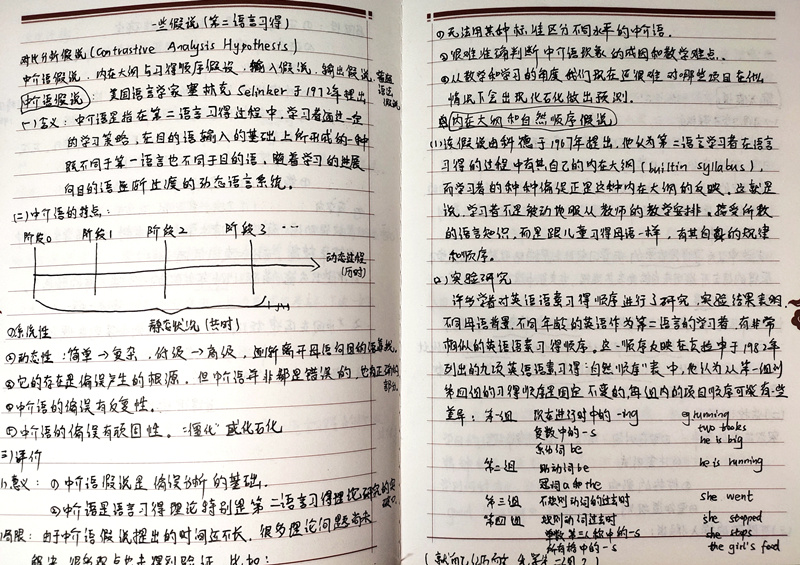 一些假说(第二语言习得)
对比分析假说(Contrastive Analysis Hypothesis)
中介语假说、内在大纲与习得顺序假设、输入假说、输出假说、普遍语法假说
中介语假说:美国语言学家塞林克 Selinker 于1972年提出
(一)含义:中介语是指在第二语言习得过程中,学习者通过一定
的学习策略,在目的语输入的基础上所形成的一种
既不同于第一语言也不同于目的语,随着学习的进展
向目的语逐渐过度的动态语言系统。
(二)中介语的特点:
阶段0 阶段1 阶段2 阶段3 ...
动态过程
(历时)
静态状况(共时)
①系统性
②动态性:简单→复杂,低级→高级,逐渐离开母语向目的语靠拢。
③它的存在是偏误产生的根源,但中介语并非都是错误的,也有正确的部分。
④中介语的偏误有反复性。
⑤中介语的偏误有顽固性。"僵化"或化石化
三)评价
1).意义:①中介语假说是偏误分析的基础.
②中介语是语言习得理论特别是第二语言习得理论研究的突破口。
局限:由于中介语假说提出的时间还不长,很多理论问题尚未
解决,很多观点也未得到验证,比如:
①无法用某种标准区分不同水平的中介语.
②很难准确判断中介语现象的成因和教学难点.
③从教学和学习的角度,我们现在还很难对哪些项目在什么
情况下会出现化石化做出预测.
内在大纲和自然顺序假说
(1)该假说由科德于1967年提出,他认为第二语言学习者在语言
习得的过程中有其自己的内在大纲(builtin syllabus),
而学习者的种种偏误正是这种内在大纲的反映。这就是
说,学习者不是被动地服从教师的教学安排、接受所教
的语言知识,而是跟儿童习得母语一样,有其自身的规律
和顺序。
(2)实验研究
许多学者对英语语素习得顺序进行了研究,实验结果表明
不同母语背景,不同年龄的英语作为第二语言的学习者,有非常
相似的英语语素习得顺序。这一顺序反映在克拉申于1982年
列出的九项英语语素习得"自然顺序"表中,他认为从第一组到
第四组的习得顺序是固定不变的,每组内的项目顺序可能有些
差异:第一组 现在进行时中的-ing eg running
复数中的-s two books
系动词be he is big
第二组 助动词be he is running
冠词a和the
第三组 不规则动词的过去时 she went
第四组 规则动词过去时 she stopped
单数第三人称中的-s she stops
所有格中的-s the girl's food